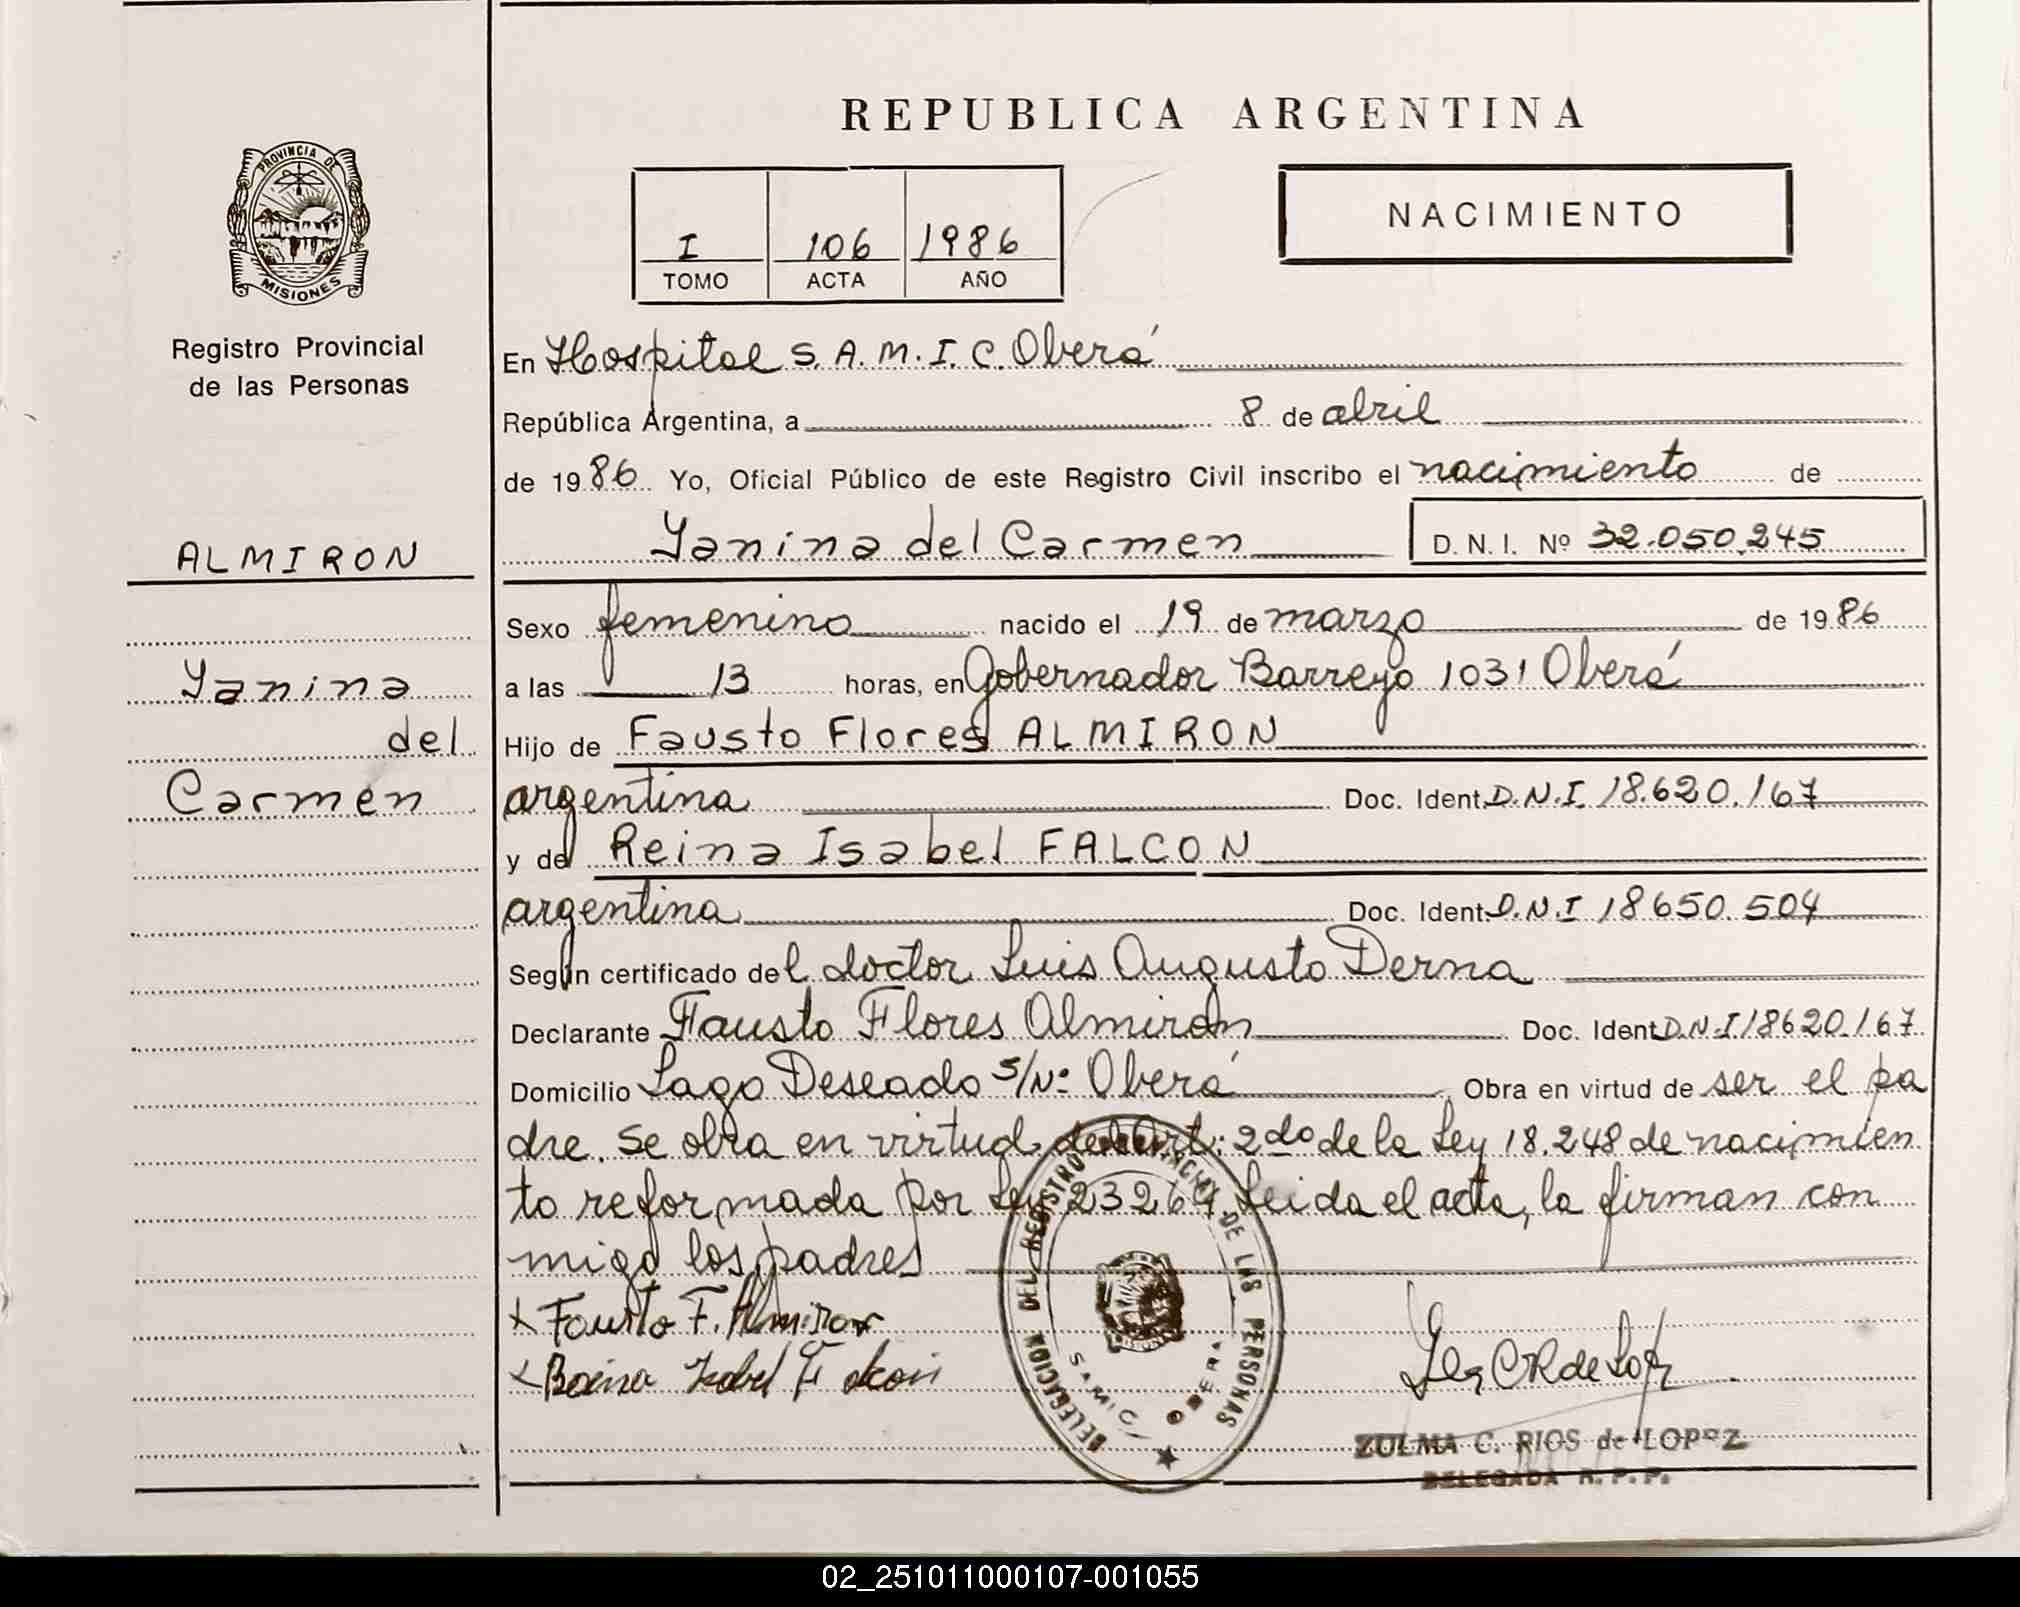 REPUBLICA ARGENTINA
PROVINCIA DE
MISIONES
Registro Provincial
de las Personas
I 106 1986
TOMO ACTA AÑO
NACIMIENTO
En Hospital S.A.M.I.C. Oberá
República Argentina, a 8 de abril
de 1986 Yo, Oficial Público de este Registro Civil inscribo el nacimiento de
Yanina del Carmen D. N. I. Nº 32.050.245
ALMIRON
Yanina
del
Carmen
Sexo femenino nacido el 19 de marzo de 1986
a las 13 horas, en Gobernador Barreyo 1031 Oberá
Hijo de Fausto Flores ALMIRON
argentina Doc. Ident. D.N.I. 18.620.167
y de Reina Isabel FALCON
argentina Doc. Ident. D.N.I 18650.504
Según certificado del doctor Luis Augusto Derna
Declarante Fausto Flores Almirón Doc. Ident. D.N.I 18620.167
Domicilio Lago Deseado s/Nº Oberá Obra en virtud de ser el pa
dre. Se obra en virtud del Art: 2do de la Ley 18.248 de nacimien
to reformada por Ley 23264. Leida el acta, la firman con
migo los padres
x Fausto F. Almiron
x Isabel
DELEGACION DEL REGISTRO PROVINCIAL DE LAS PERSONAS
SAMIC OBERA
ZULMA C. RIOS de LOPEZ
DELEGADA R. P. P.
02_251011000107-001055